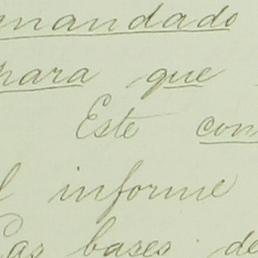 mandado
para que
Este con
l informe
Las bases de